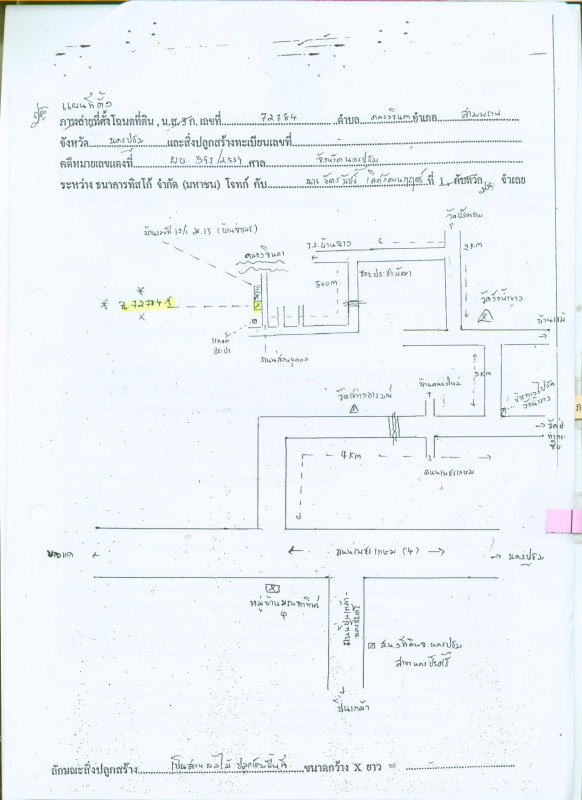 แผนที่ตั้ง
ภาพถ่ายที่ตั้งโฉนดที่ดิน, น.ส. 3 ก. เลขที่ 72784 ตำบล คลองจินดา อำเภอ สามพราน
จังหวัด นครปฐม และสิ่งปลูกสร้างทะเบียนเลขที่ -
คดีหมายเลขแดงที่ ผบ 397/2559 ศาล จังหวัดนครปฐม
ระหว่าง ธนาคารทิสโก้ จำกัด (มหาชน) โจทก์ กับ นาย ที่ 1 กับพวก จำเลย
วัดปรีดาราม
บ้านเลขที่ 17/1 ม.13
คลองจินดา
ร.ร.บ้านฉาง
6
2 KM
500 m
ซอยประชาพัฒนา
วัดวังน้ำขาว
ฉ.72784
บ้านแพ้ว
ถนนส่วนบุคคล
3 KM
บ้านคลองใหม่
4 KM
ถนนเพชรเกษม
บางแค
ถนนเพชรเกษม (4)
นครปฐม
หมู่บ้าน
ถนนปิ่นเกล้า-นครชัยศรี
สนง.ที่ดินจ.นครปฐม
สาขานครชัยศรี
ปิ่นเกล้า
ลักษณะสิ่งปลูกสร้าง เป็นสวนผลไม้ ขนาดกว้าง X ยาว = -